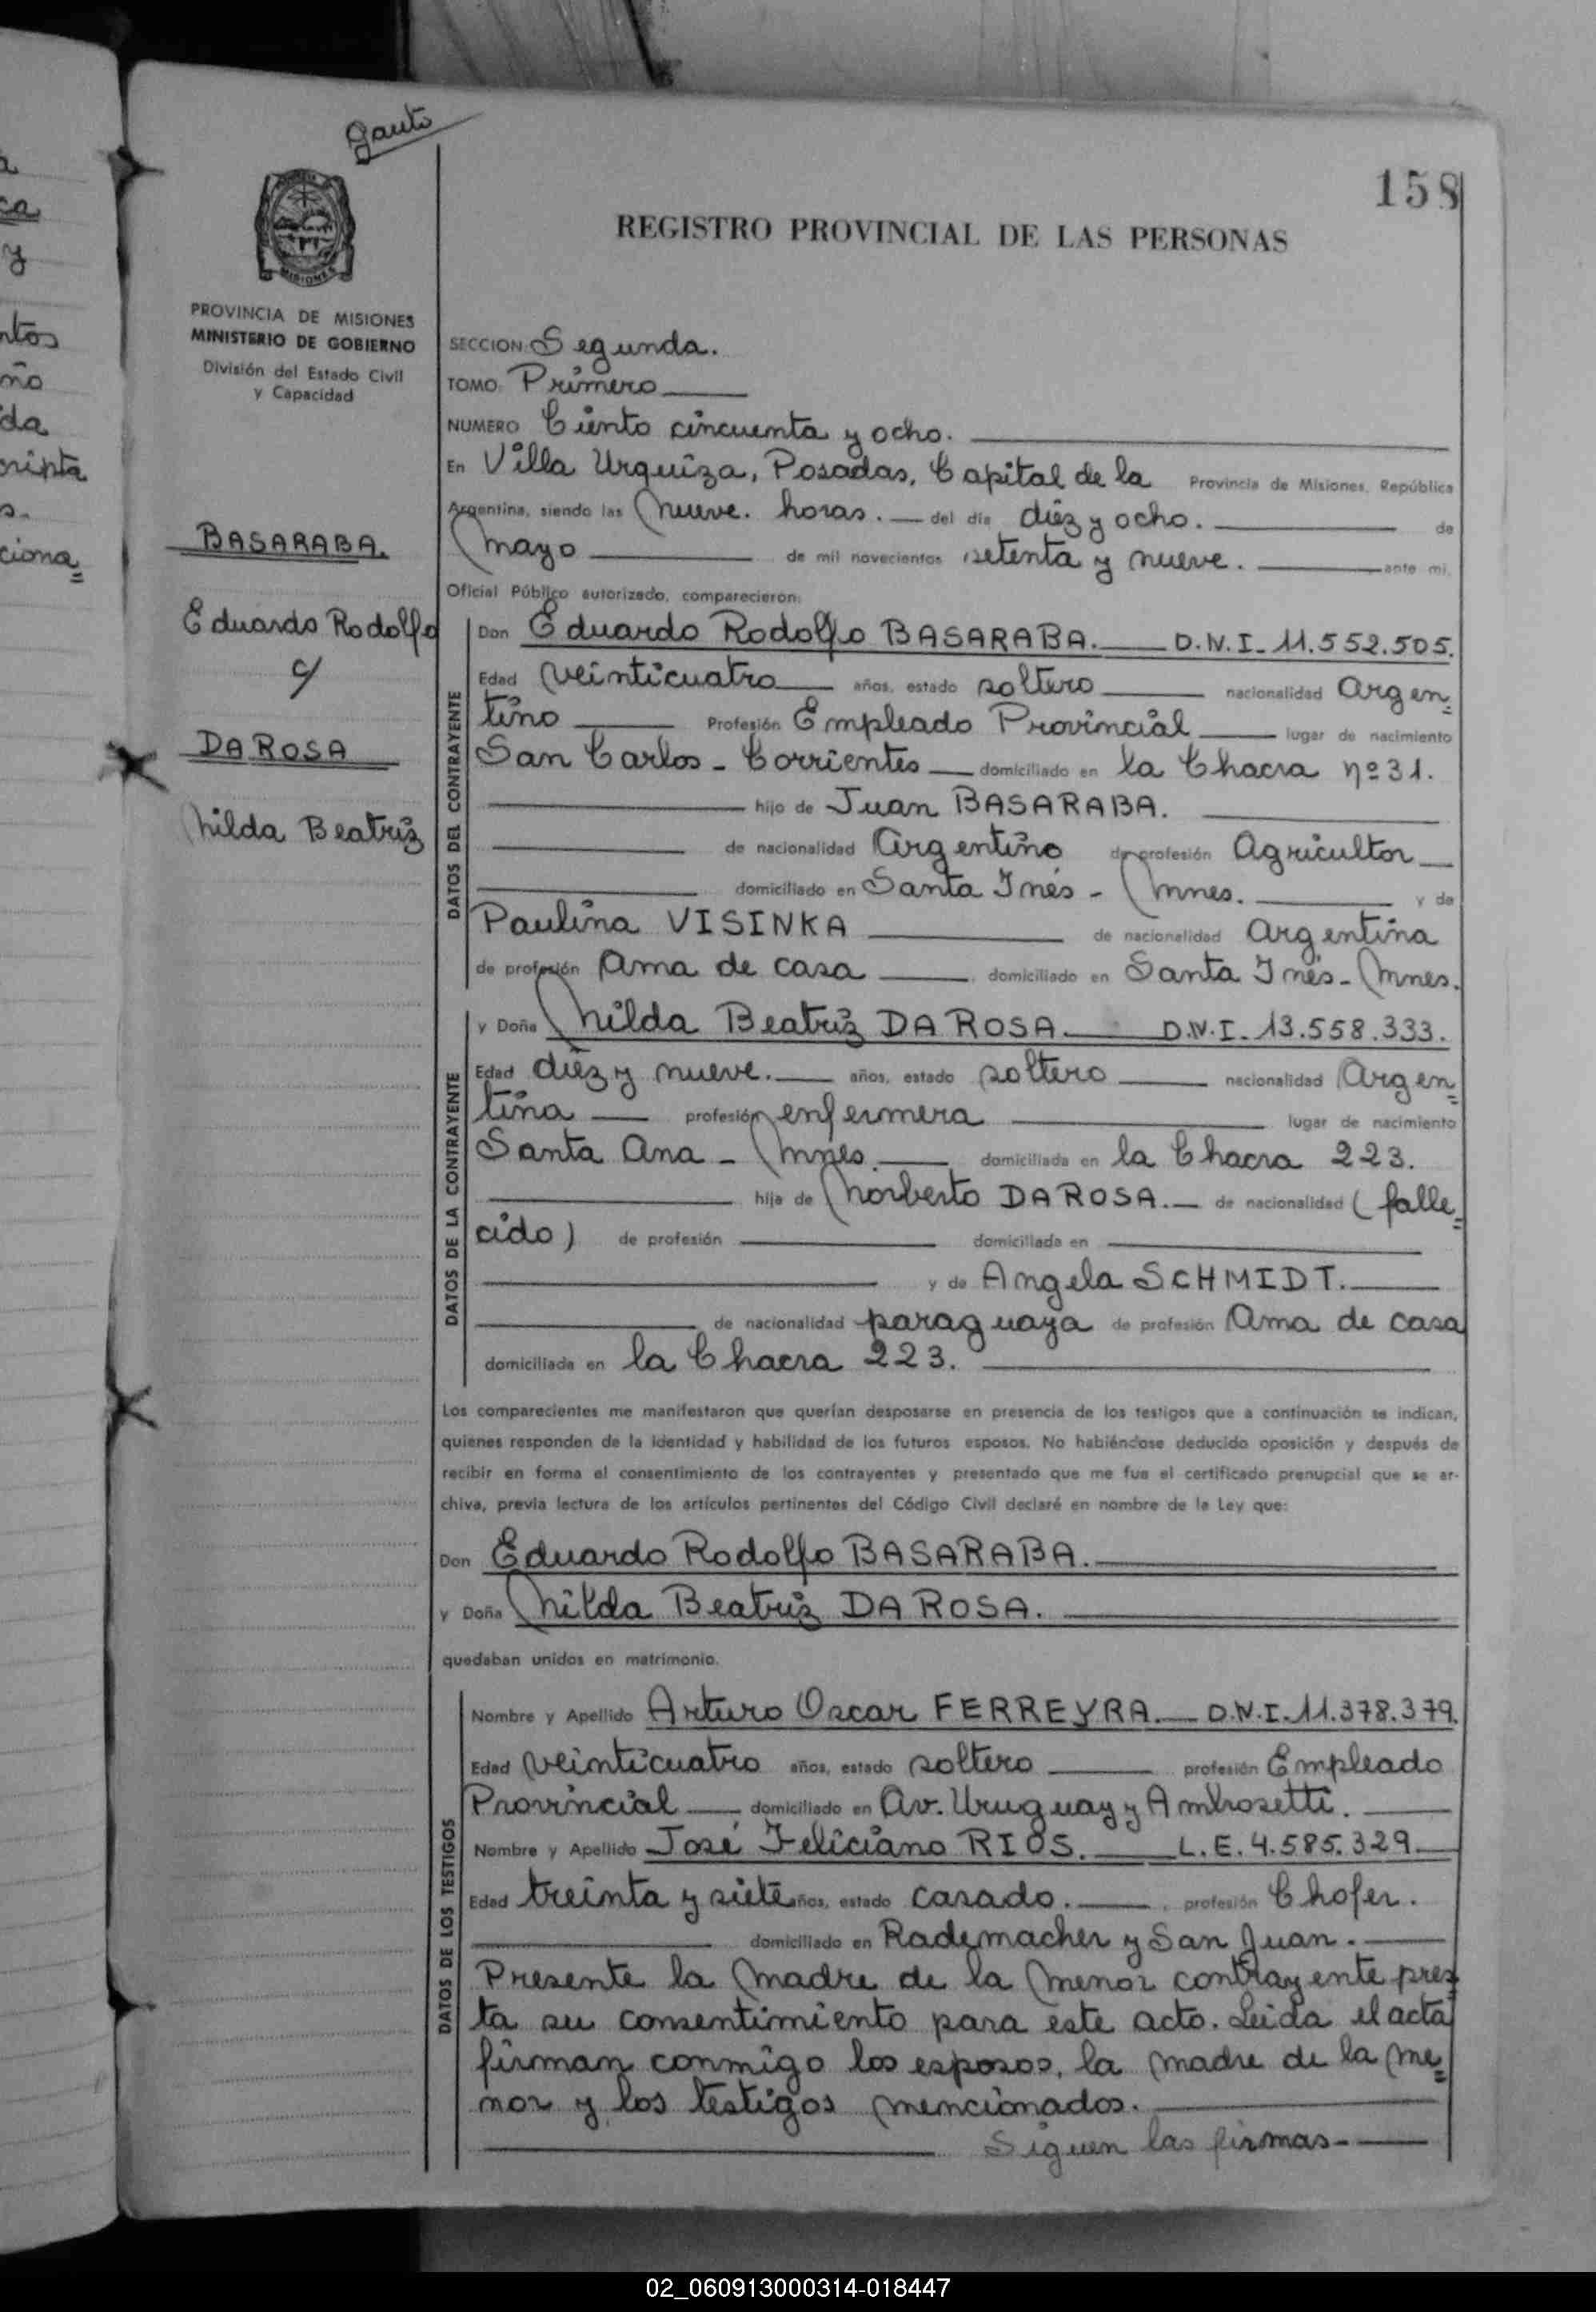 gauto
158
REGISTRO PROVINCIAL DE LAS PERSONAS
MISIONES
PROVINCIA DE MISIONES
MINISTERIO DE GOBIERNO
División del Estado Civil
y Capacidad
BASARABA.
Eduardo Rodolfo
c/
DA ROSA
Nilda Beatriz
SECCION: Segunda.
TOMO: Primero
NUMERO Ciento cincuenta y ocho.
En Villa Urquiza, Posadas, Capital de la Provincia de Misiones, República
Argentina, siendo las Nueve. horas. del día diéz y ocho. de
Mayo de mil novecientos setenta y nueve. ante mi,
Oficial Público autorizado, comparecieron:
DATOS DEL CONTRAYENTE
Don Eduardo Rodolfo BASARABA. D.N.I. 11.552.505.
Edad veinticuatro años, estado soltero nacionalidad Argen=
tino Profesión Empleado Provincial lugar de nacimiento
San Carlos - Corrientes domiciliado en la Chacra nº 31.
hijo de Juan BASARABA.
de nacionalidad Argentino de profesión Agricultor
domiciliado en Santa Inés - Mnes. y de
Paulina VISINKA de nacionalidad Argentina
de profesión Ama de casa domiciliado en Santa Inés - Mnes.
DATOS DE LA CONTRAYENTE
y Doña Nilda Beatriz DA ROSA. D.N.I. 13.558.333.
Edad diéz y nueve. años, estado soltero nacionalidad Argen=
tina profesión enfermera lugar de nacimiento
Santa Ana - Mnes. domiciliada en la Chacra 223.
hija de Norberto DA ROSA. de nacionalidad (falle=
cido) de profesión domiciliada en
y de Angela SCHMIDT.
de nacionalidad paraguaya de profesión Ama de casa
domiciliada en la Chacra 223.
Los comparecientes me manifestaron que querían desposarse en presencia de los testigos que a continuación se indican,
quienes responden de la identidad y habilidad de los futuros esposos. No habiéndose deducido oposición y después de
recibir en forma el consentimiento de los contrayentes y presentado que me fue el certificado prenupcial que se ar-
chiva, previa lectura de los artículos pertinentes del Código Civil declaré en nombre de la Ley que:
Don Eduardo Rodolfo BASARABA.
y Doña Nilda Beatriz DA ROSA.
quedaban unidos en matrimonio.
DATOS DE LOS TESTIGOS
Nombre y Apellido Arturo Oscar FERREYRA. D.N.I. 11.378.379.
Edad veinticuatro años, estado soltero profesión Empleado
Provincial domiciliado en Av. Uruguay y Ambrosetti.
Nombre y Apellido José Feliciano RIOS. L.E. 4.585.329
Edad treinta y siete años, estado casado. profesión Chofer.
domiciliado en Rademacher y San Juan.
Presente la madre de la menor contrayente pres
ta su consentimiento para este acto. Leida el acta
firman conmigo los esposos, la madre de la me=
nor y los testigos mencionados.
Siguen las firmas-
02_060913000314-018447